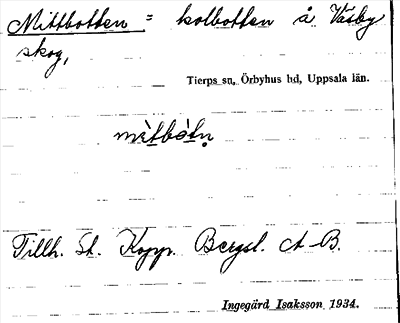 Mittbotten = kolbotten å Väsby
skog,
Tierps sn, Örbyhus hd, Uppsala län.
mìtbòtn̥
Tillh. St. Kopp. Bergsl. A-B.
Ingegärd Isaksson 1934.